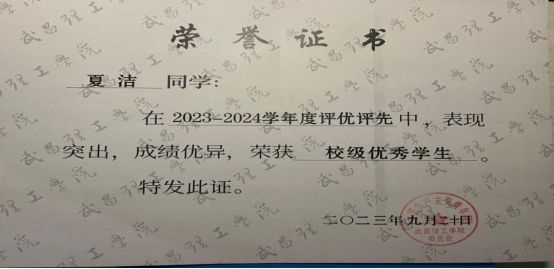 荣誉证书
夏洁 同学:
在2023-2024学年度评优评先中,表现
突出,成绩优异,荣获 校级优秀学生 。
特发此证。
二〇二三年九月二十日
武昌理工学院
委员会